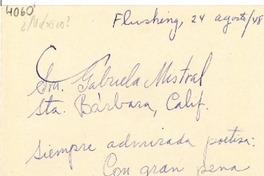 4060
¿México?
Flushing, 24 agosto/48
Sra. Gabriela Mistral
Sta. Bárbara, Calif.
Siempre admirada poetisa:
Con gran pena